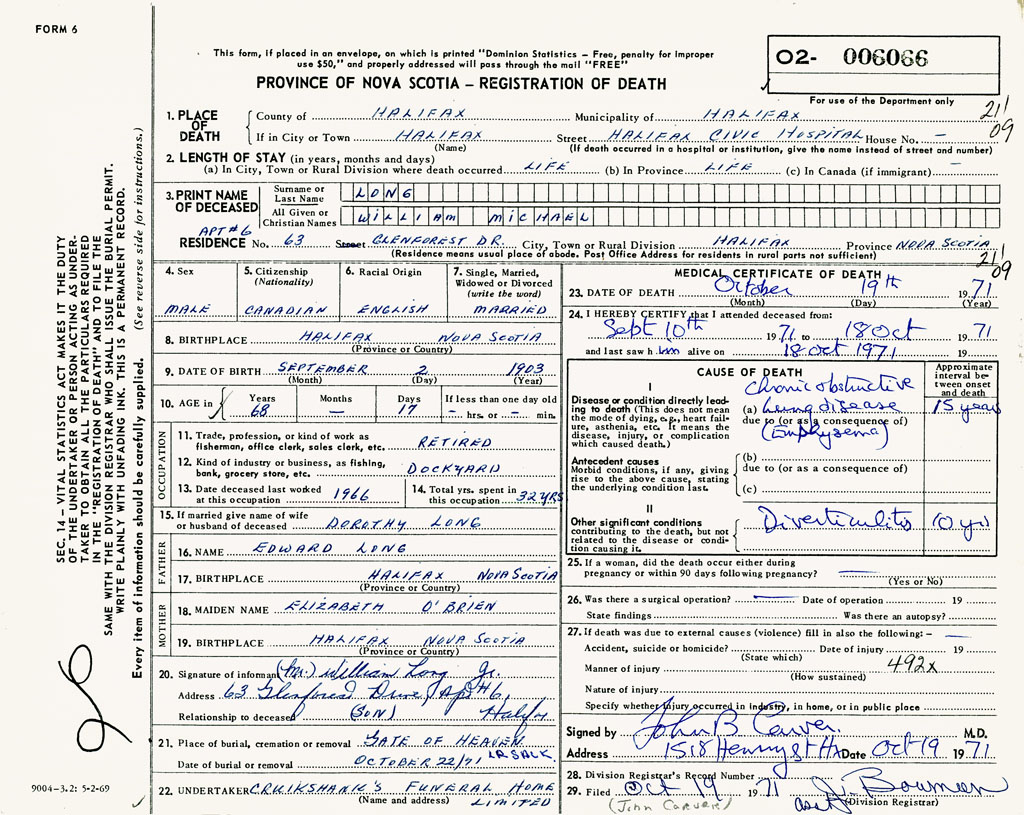 FORM 6
This form, if placed in an envelope, on which is printed "Dominion Statistics – Free, penalty for improper
use $50," and properly addressed will pass through the mail "FREE"
PROVINCE OF NOVA SCOTIA – REGISTRATION OF DEATH
02- 006066
For use of the Department only
21/09
1. PLACE OF DEATH County of HALIFAX Municipality of HALIFAX
If in City or Town HALIFAX Street HALIFAX CIVIC HOSPITAL House No. –
(Name) (If death occurred in a hospital or institution, give the name instead of street and number)
2. LENGTH OF STAY (in years, months and days)
(a) In City, Town or Rural Division where death occurred LIFE (b) In Province LIFE (c) In Canada (if immigrant) –
3. PRINT NAME OF DECEASED Surname or Last Name LONG
All Given or Christian Names WILLIAM MICHAEL
APT #6
RESIDENCE No. 63 Street GLENFOREST DR. City, Town or Rural Division HALIFAX Province NOVA SCOTIA
(Residence means usual place of abode. Post Office Address for residents in rural parts not sufficient)
21/09
4. Sex MALE
5. Citizenship (Nationality) CANADIAN
6. Racial Origin ENGLISH
7. Single, Married, Widowed or Divorced (write the word) MARRIED
8. BIRTHPLACE HALIFAX NOVA SCOTIA
(Province or Country)
9. DATE OF BIRTH SEPTEMBER 2 1903
(Month) (Day) (Year)
10. AGE in Years 68 Months – Days 17 If less than one day old – hrs. or – min.
OCCUPATION
11. Trade, profession, or kind of work as fisherman, office clerk, sales clerk, etc. RETIRED
12. Kind of industry or business, as fishing, bank, grocery store, etc. DOCKYARD
13. Date deceased last worked at this occupation 1966
14. Total yrs. spent in this occupation 32 YRS
15. If married give name of wife or husband of deceased DOROTHY LONG
FATHER
16. NAME EDWARD LONG
17. BIRTHPLACE HALIFAX NOVA SCOTIA
(Province or Country)
MOTHER
18. MAIDEN NAME ELIZABETH O'BRIEN
19. BIRTHPLACE HALIFAX NOVA SCOTIA
(Province or Country)
20. Signature of informant (Mr.) William Long Jr.
Address 63 Glenforest Drive, Apt #6,
Relationship to deceased (SON) Halifx
21. Place of burial, cremation or removal GATE OF HEAVEN
Date of burial or removal OCTOBER 22/71 LR SALK.
22. UNDERTAKER CRUIKSHANK'S FUNERAL HOME
(Name and address) LIMITED
MEDICAL CERTIFICATE OF DEATH
23. DATE OF DEATH October 19th 1971
(Month) (Day) (Year)
24. I HEREBY CERTIFY that I attended deceased from:
Sept 10th 1971 to 18 Oct 1971
and last saw h im alive on 18 Oct 1971 19
CAUSE OF DEATH
Approximate interval between onset and death
I
Disease or condition directly leading to death (This does not mean the mode of dying, e.g., heart failure, asthenia, etc. It means the disease, injury, or complication which caused death.)
Chronic obstructive
(a) lung disease 15 years
due to (or as a consequence of)
(Emphysema)
Antecedent causes
Morbid conditions, if any, giving rise to the above cause, stating the underlying condition last.
(b)
due to (or as a consequence of)
(c)
II
Other significant conditions contributing to the death, but not related to the disease or condition causing it.
Diverticulitis 10 yrs
25. If a woman, did the death occur either during pregnancy or within 90 days following pregnancy? —
(Yes or No)
26. Was there a surgical operation? — Date of operation 19
State findings Was there an autopsy?
27. If death was due to external causes (violence) fill in also the following: – —
Accident, suicide or homicide? Date of injury 19
(State which)
Manner of injury 492X
(How sustained)
Nature of injury
Specify whether injury occurred in industry, in home, or in public place
Signed by John B Carver M.D.
Address 1518 Henry St Hx Date Oct 19 1971
28. Division Registrar's Record Number
29. Filed Oct 19 1971 J. Bowmen
(John Carver) asst (Division Registrar)
SEC. 14 – VITAL STATISTICS ACT MAKES IT THE DUTY
OF THE UNDERTAKER OR PERSON ACTING AS UNDER-
TAKER TO OBTAIN ALL THE PARTICULARS REQUIRED
IN THE "REGISTRATION OF DEATH" AND TO FILE THE
SAME WITH THE DIVISION REGISTRAR WHO SHALL ISSUE THE BURIAL PERMIT.
WRITE PLAINLY WITH UNFADING INK. THIS IS A PERMANENT RECORD.
Every item of information should be carefully supplied. (See reverse side for instructions.)
9004-3.2: 5-2-69